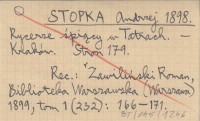 STOPKA Andrzej 1898.
Rycerze śpiący w Tatrach. —
Kraków. Stron 179.
Rec.: Zawiliński Roman,
Biblioteka Warszawska (Warszawa)
1899, tom 1 (232): 166—171.